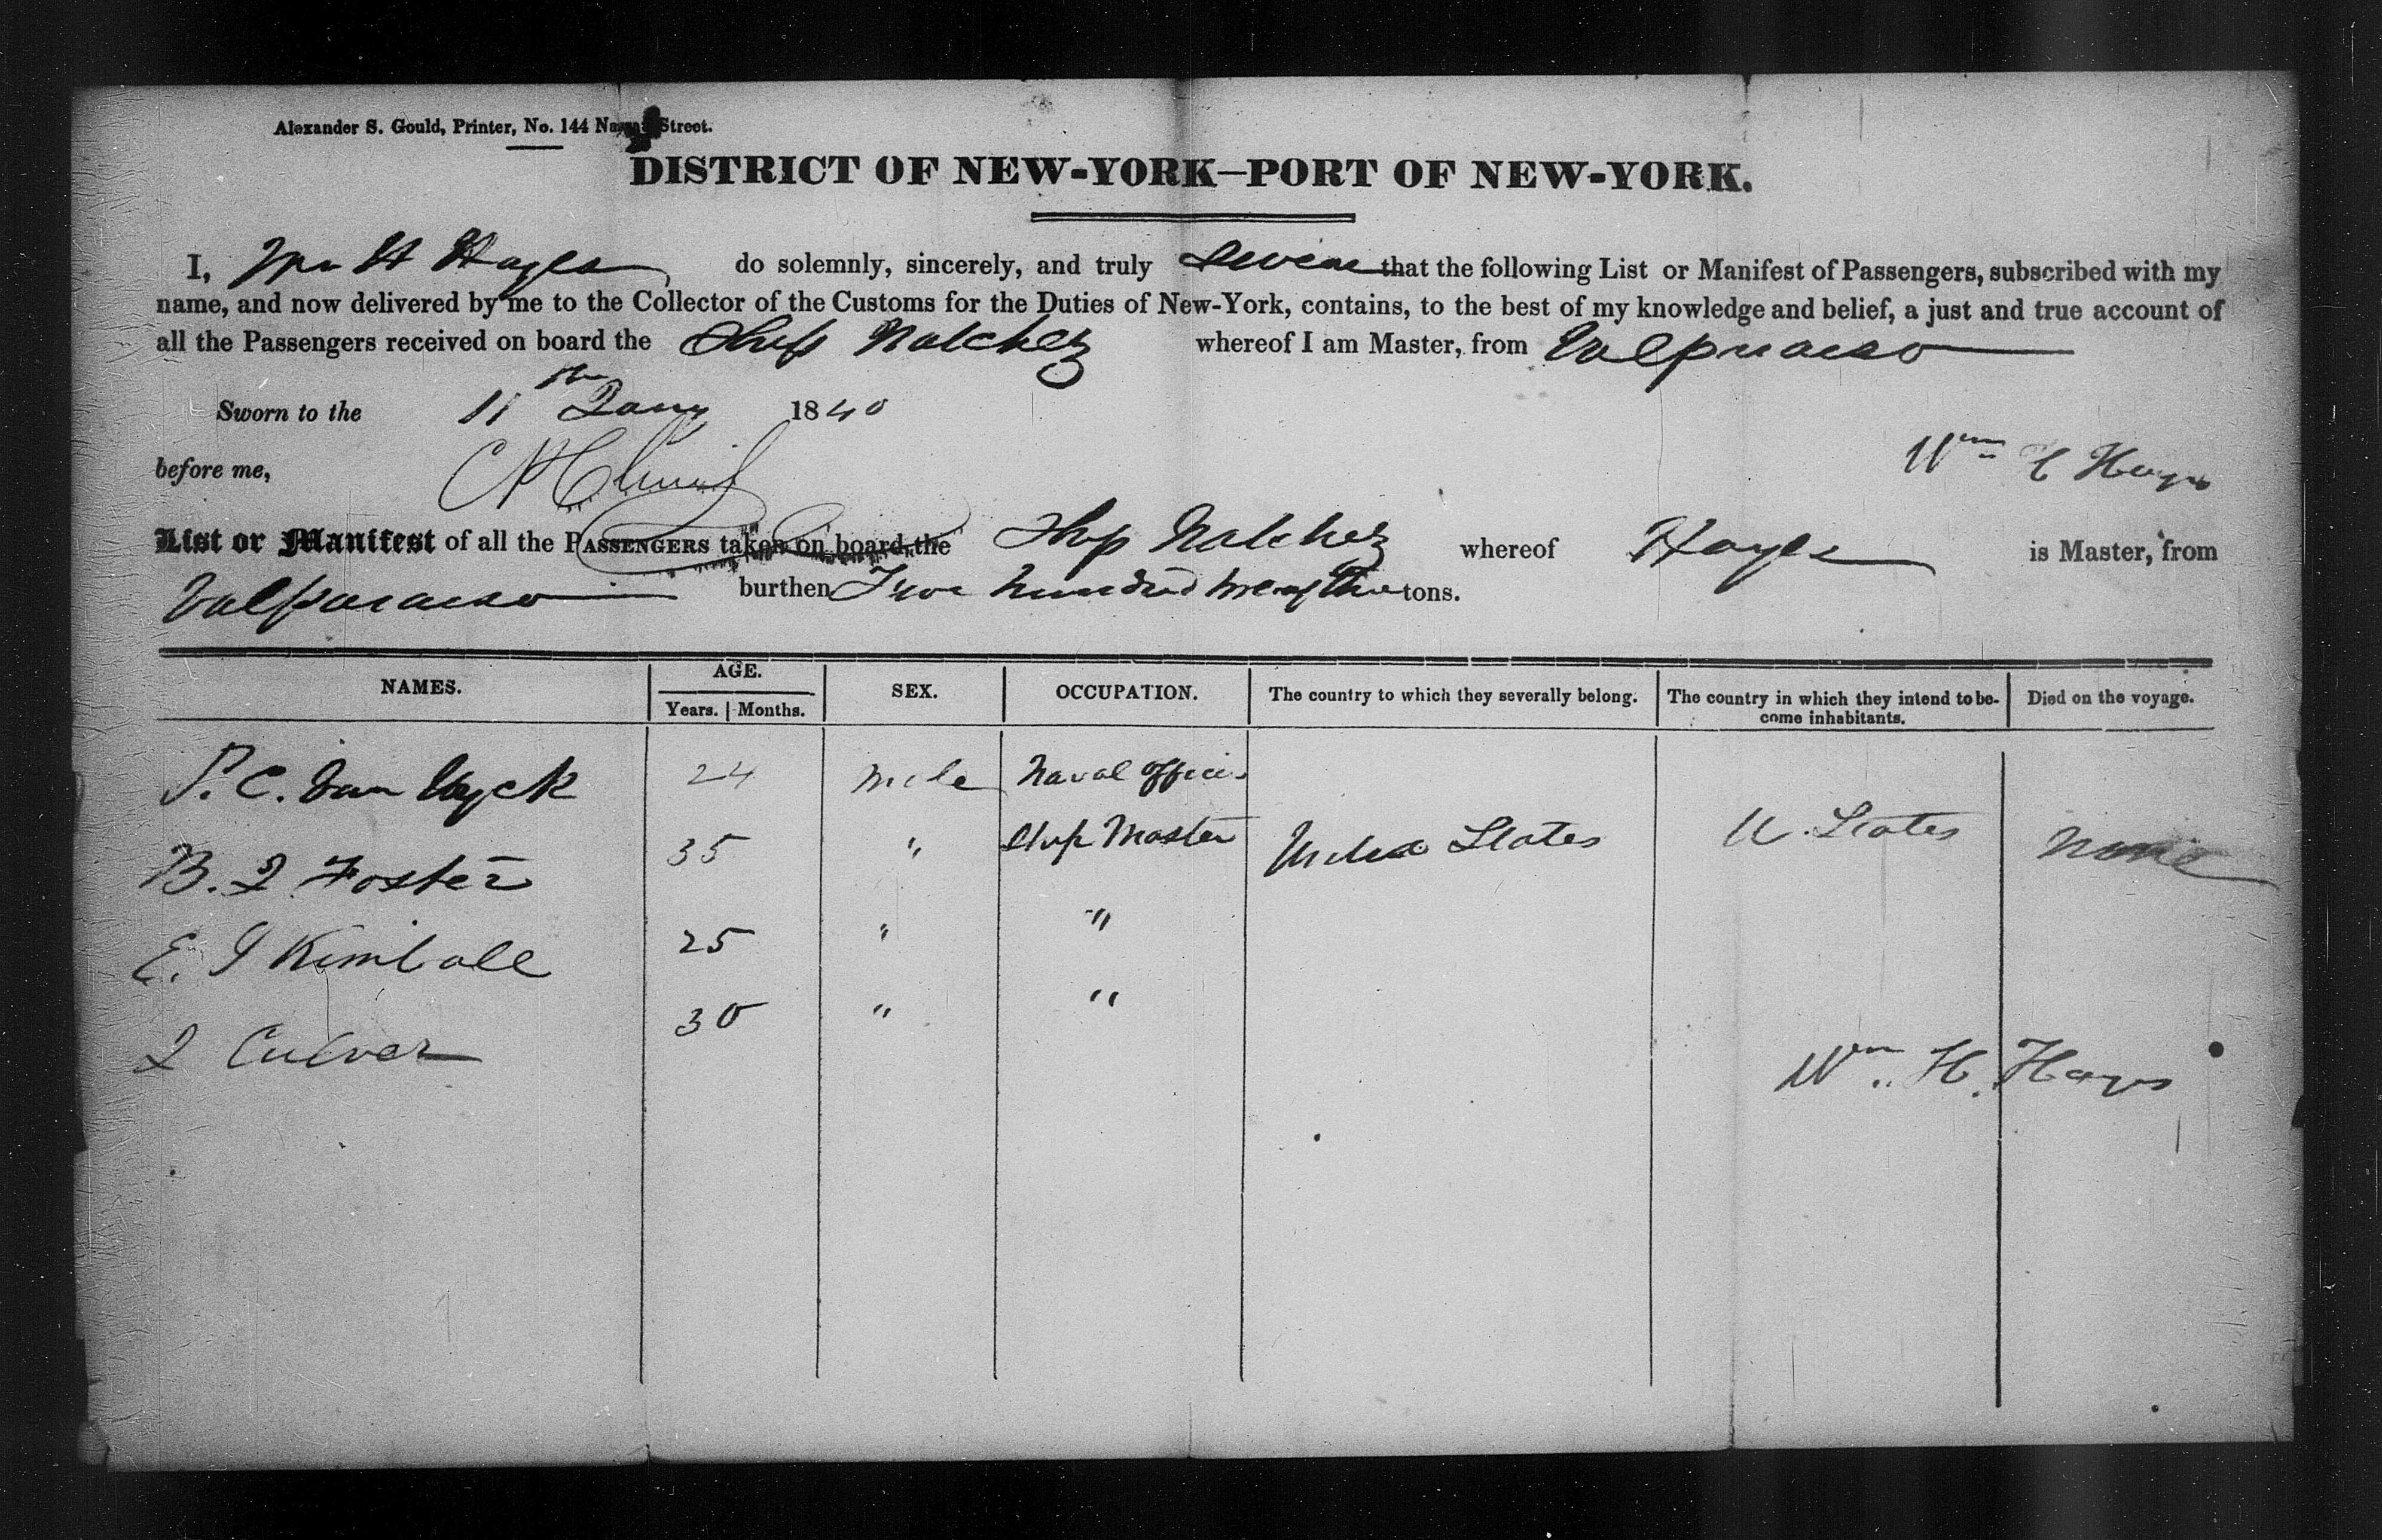 Alexander S. Gould, Printer, No. 144 Nassau Street.
DISTRICT OF NEW-YORK—PORT OF NEW-YORK.
I, Wm H Hayes do solemnly, sincerely, and truly swear that the following List or Manifest of Passengers, subscribed with my
name, and now delivered by me to the Collector of the Customs for the Duties of New-York, contains, to the best of my knowledge and belief, a just and true account of
all the Passengers received on board the Ship Natchez whereof I am Master, from Valparaiso
Sworn to the 11th Jany 1840
before me,
Wm H Hays
List or Manifest of all the PASSENGERS taken on board the Ship Natchez whereof Hayes is Master, from
Valparaiso burthen Two hundred tons.
NAMES. AGE. SEX. OCCUPATION. The country to which they severally belong. The country in which they intend to be-come inhabitants. Died on the voyage.
Years. Months.
P. C. Van Wyck 24 male Naval Officer
B. J Foster 35 " Ship Master United States U. States None
E. J Kimball 25 " "
J Culver 30 " "
Wm. H. Hays